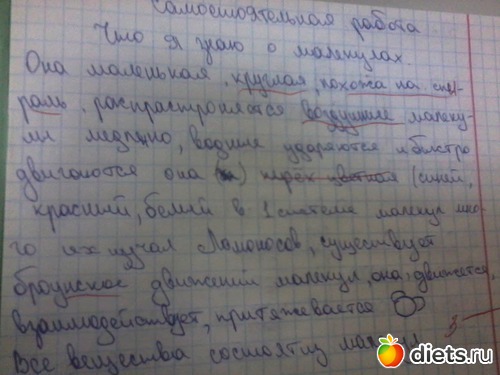 Самостоятельная работа.
Что я знаю о малекулах.
Она маленькая, круглая, похожа на спи-
раль. распрастроняется воздушние малеку-
ли медлено, водние ударяются и бистро
двигаются она цветная (синей,
красний, белий в 1 малекул мно-
го их изучал Ламоносов, существует
броунское движений малекул, она движется
взаимодействует, притяжевается
3
Все вещества состоят из малекул
diets.ru